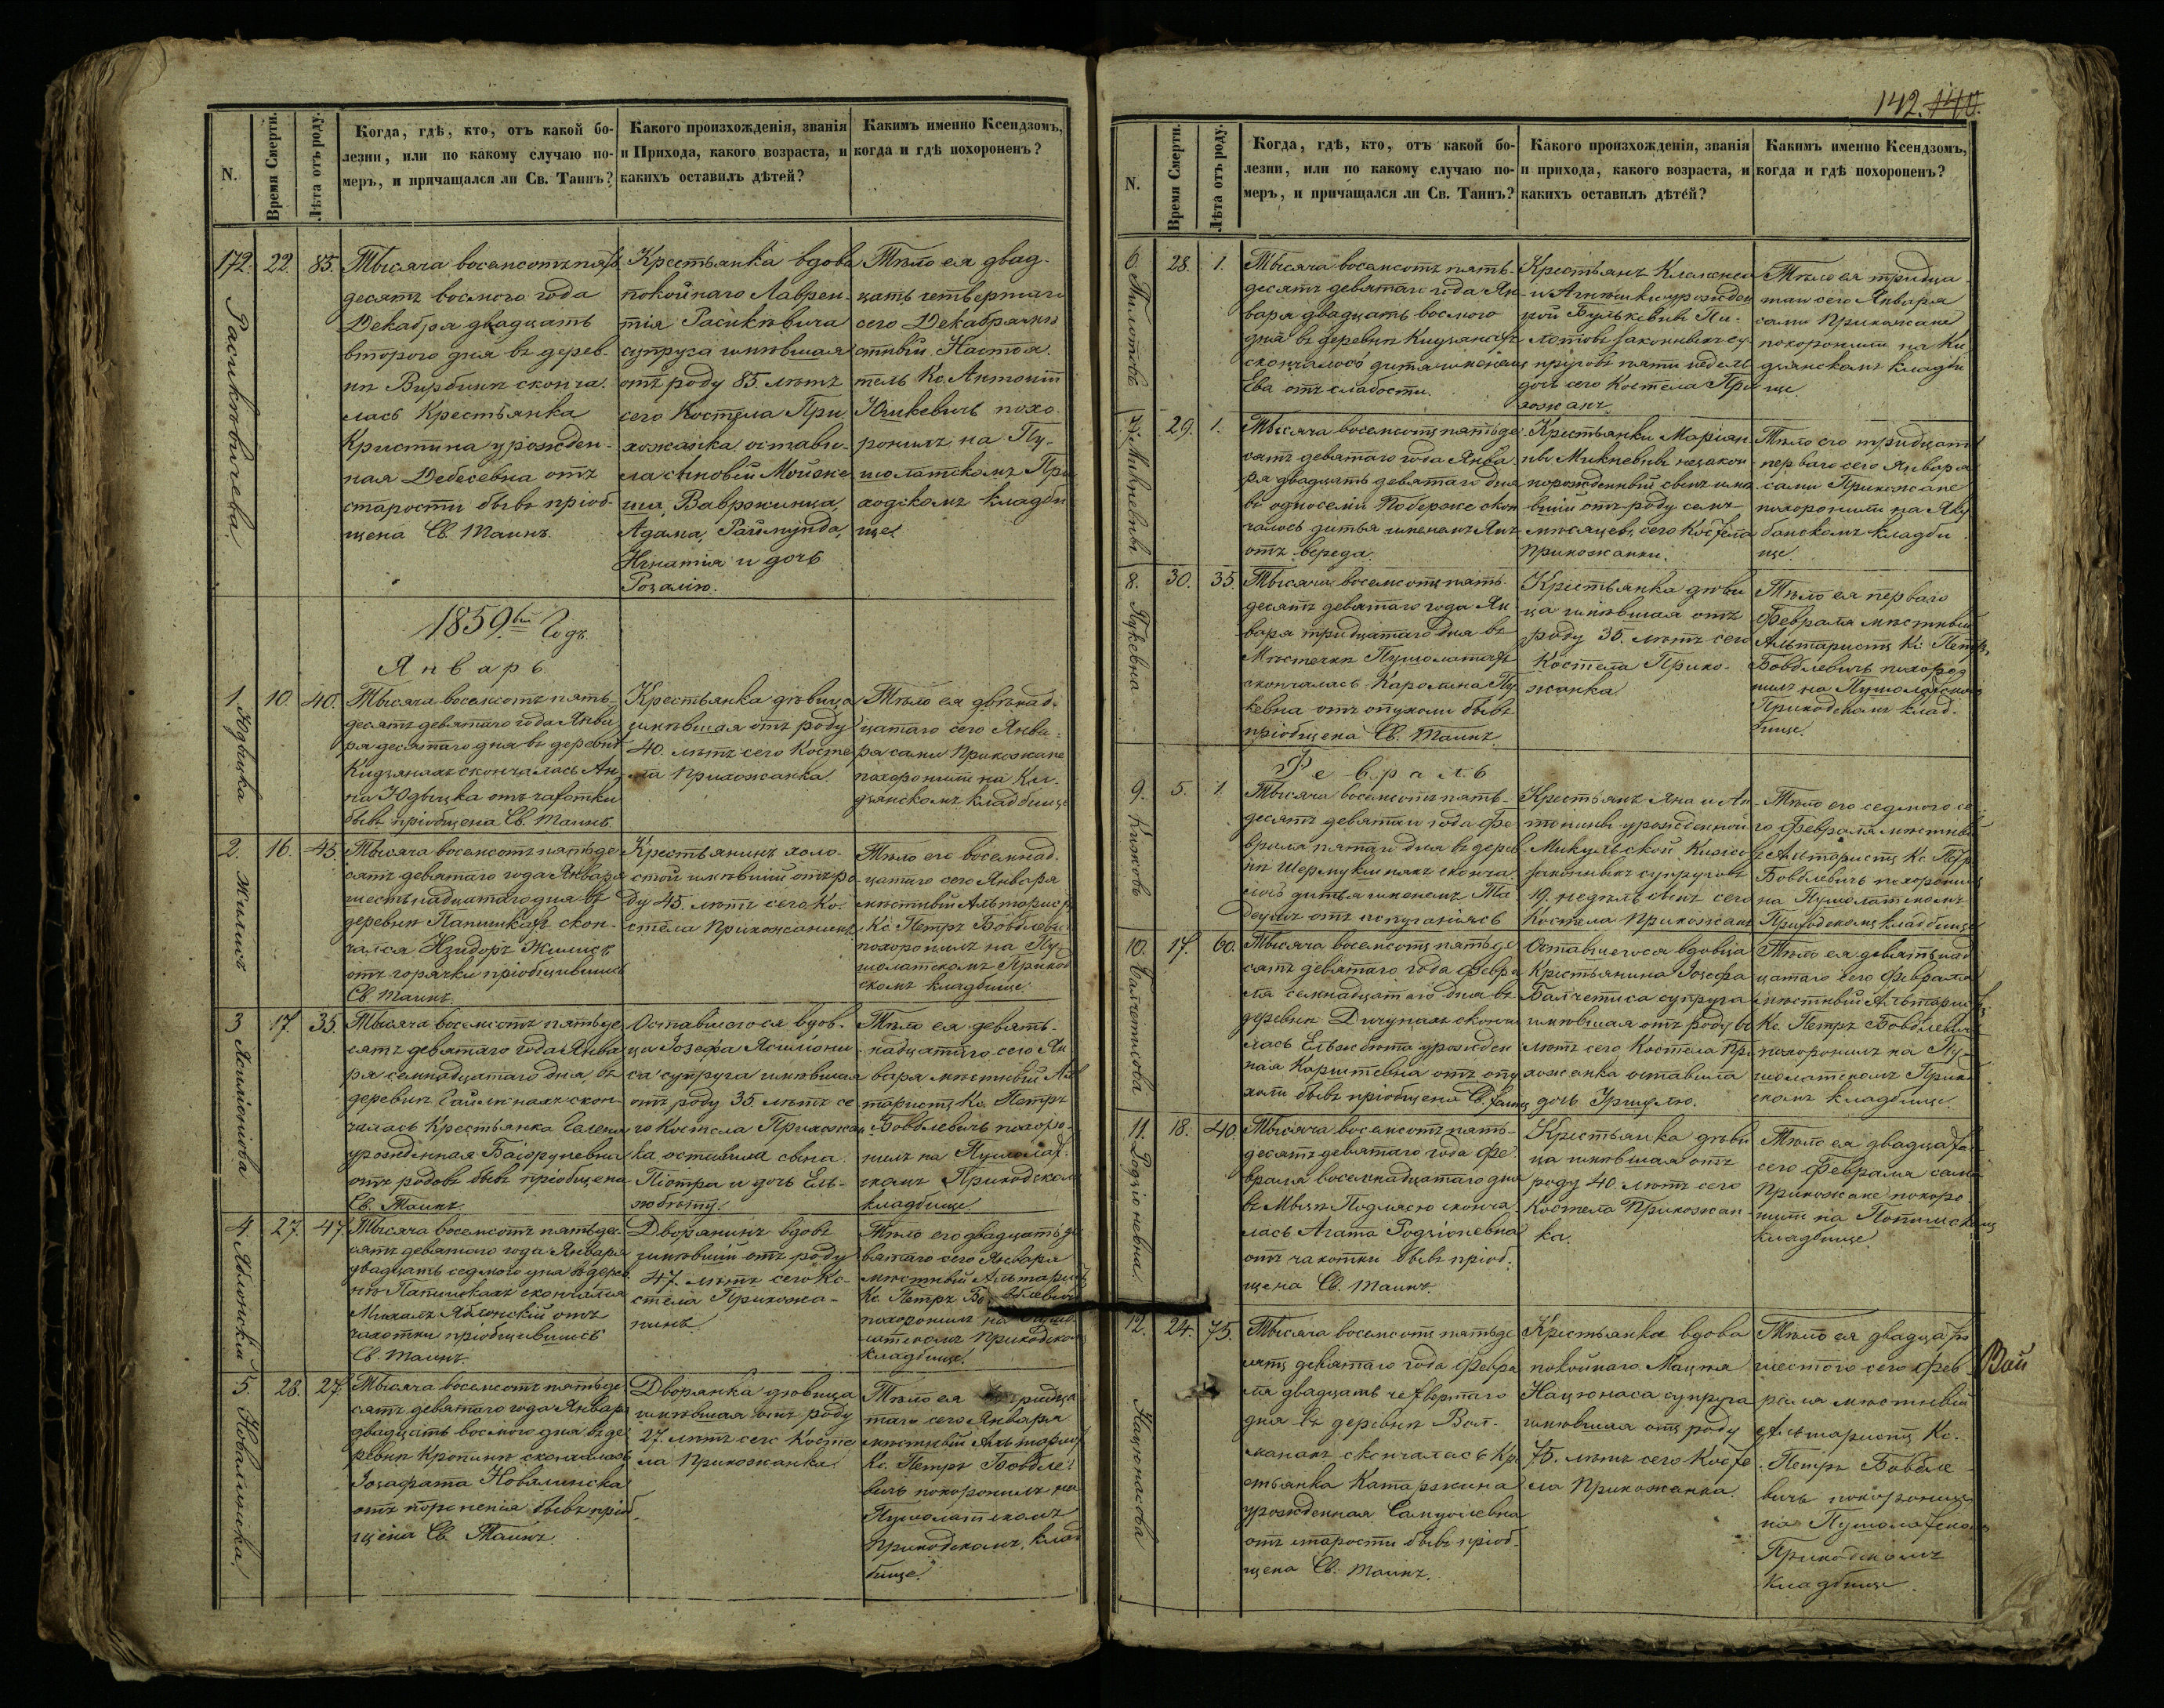 N.
Время Смерти.
Лѣта отъ роду.
Когда, гдѣ, кто, отъ какой бо-
лезни, или по какому случаю по-
меръ, и причащался ли Св. Таинъ?
Какого произхожденія, званія
и Прихода, какого возраста, и
какихъ оставилъ дѣтей?
Какимъ именно Ксендзомъ,
когда и гдѣ похороненъ?
172. 22. 85.
Тысяча восемсотъ пять
десятъ восмого года
Декабря двадцать
второго дня въ дерев-
нѣ Вирбинѣ сконча-
лась Крестьянка
Кристина урожден-
ная Дебесевна отъ
старости бывъ пріоб-
щена Св. Таинъ.
Крестьянка вдова
покойнаго Лаврен-
тія Расикѣвича
супруга имѣвшая
отъ роду 85. лѣтъ
сего Костела При-
хожанка оставила
сыновій
Вавржинца,
Адама, Раймунда,
Игнатія и дочь
Розалію.
Тѣло ея двад-
цать четвертаго
сего Декабря
Настоя-
тель Кс. Антоній
Юшкевичъ похо-
ронилъ на Пу-
шолатскомъ При-
ходскомъ кладби
ще.
1859ый Годъ.
Январь.
1. 10. 40.
Тысяча восемсотъ пять-
десятъ девятаго года Янва
ря десятаго дня въ деревнѣ
Кидзянахъ скончалась Ан-
на Юдыцка отъ чахотки
бывъ пріобщена Св. Таинъ.
Крестьянка дѣвица
имѣвшая отъ роду
40. лѣтъ сего Косте
ла Прихожанка.
Тѣло ея двѣнад-
цатаго сего Янва-
ря сами Прихожане
похоронили на Ки-
дзянскомъ кладбище
2. 16. 45.
Тысяча восемсотъ пятьде
сятъ девятаго года Января
шестьнадцатаго дня въ
деревнѣ Папишкахъ скон-
чался Изидоръ Жилисъ
отъ горячки пріобщившись
Св. Таинъ.
Крестьянинъ холо-
стой имѣвшій отъ ро-
ду 45. лѣтъ сего Ко-
стела Прихожанинъ.
Тѣло его восемнад-
цатаго сего Января
мѣстный Альтаристъ
Кс. Петръ Бовблевичъ
похоронилъ на Пу-
шолатскомъ Приход
скомъ кладбище.
3. 17. 35.
Тысяча восемсотъ пятьде
сятъ девятаго года Янва
ря семнадцатаго дня, въ
деревнѣ скон-
чалась Крестьянка Гелена
урожденная
отъ родовъ бывъ пріобщена
Св. Таинъ.
Оставшогося вдов-
ца Іозефа Ясиліони
са супруга имѣвшая
отъ роду 35. лѣтъ се
го Костела Прихожан
ка оставила сына
Піотра и дочь Ель-
жбѣту.
Тѣло ея девять-
надцатаго сего Ян
варя мѣстный Аль
таристъ Кс. Петръ
Бовблевичъ похоро-
нилъ на Пушолат-
скомъ Приходскомъ
кладбище.
4. 27. 47.
Тысяча восемсотъ пятьде-
сятъ девятого года Января
двадцать седмого дня въ дерев
нѣ Папишкахъ скончался
Михалъ Яблонскій отъ
чахотки пріобщившись
Св. Таинъ.
Дворянинъ вдовъ
имѣвшій отъ роду
47. лѣтъ сего Ко-
стела Прихожа-
нинъ.
Тѣло его двадцать де
вятаго сего Января
мѣстный Альтаристъ
Кс. Петръ Бовблевичъ
похоронилъ на Пушо
латскомъ Приходскомъ
кладбище.
5. 28. 27.
Тысяча восемсотъ пятьде
сятъ девятаго года Января
двадцать восмого дня въ де
ревнѣ Кропинѣ скончалась
Іозафата Новалинска
отъ бывъ пріоб
щена Св. Таинъ.
Дворянка дѣвица
имѣвшая отъ роду
27. лѣтъ сего Косте
ла Прихожанка.
Тѣло ея тридца
таго сего Января
мѣстный Альтаристъ
Кс. Петръ Бовбле
вичъ похоронилъ на
Пушолатскомъ
Приходскомъ клад
бище.
Расикѣвичева
Юдыцка
Жилисъ
Ясиліонисова
Яблонскій
Новалинска
142. 140.
N.
Время Смерти.
Лѣта отъ роду.
Когда, гдѣ, кто, отъ какой бо-
лезни, или по какому случаю по-
меръ, и причащался ли Св. Таинъ?
Какого произхожденія, званія
и прихода, какого возраста, и
какихъ оставилъ дѣтей?
Какимъ именно Ксендзомъ,
когда и гдѣ похороненъ?
6. 28. 1.
Тысяча восемсотъ пять-
десятъ девятаго года Ян-
варя двадцать восмого
дня въ деревнѣ Кидзянахъ
скончалось дитя именемъ
Ева отъ слабости.
Крестьянъ
и Агнѣшки урожден
ной Пи-
лотовъ законныхъ су-
пруговъ пяти недель
дочь сего Костела При
хожанъ.
Тѣло ея тридца-
таго сего Января
сами Прихожане
похоронили на Ки
дзянскомъ кладби
ще.
7. 29. 1.
Тысяча восемсотъ пятьде
сятъ девятаго года Янва
ря двадцать девятаго дня
въ односеліи Побержже скон
чалось дитя именемъ Янъ
отъ вереда.
Крестьянки Маріан
ны Микневны незакон
норожденный сынъ имѣ
вшій отъ роду семь
мѣсяцевъ, сего Костела
Прихожанки.
Тѣло его тридцать
перваго сего Января
сами Прихожане
похоронили на Яку
банскомъ кладби
ще
8. 30. 35.
Тысяча восемсотъ пять-
десятъ девятаго года Ян
варя тридцатаго дня въ
Мѣстечкѣ Пушолатахъ
скончалась Каролина Пу
кевна отъ опухоли бывъ
пріобщена Св. Таинъ.
Крестьянка дѣви
ца имѣвшая отъ
роду 35. лѣтъ сего
Костела Прихо-
жанка.
Тѣло ея перваго
Февраля мѣстный
Альтаристъ Кс. Петръ
Бовблевичъ похоро
нилъ на Пушолатскомъ
Приходскомъ клад-
бище.
Февраль
9. 5. 1.
Тысяча восемсотъ пять-
десятъ девятаго года Фе
враля пятаго дня въ дерев
нѣ сконча
лось дитя именемъ Та
деушъ отъ испуганіясь
Крестьянъ Яна и Ан-
тонины урожденной
Микульской
законныхъ супруговъ
19. недѣль сынъ сего
Костела Прихожанъ
Тѣло его седмого се-
го Февраля мѣстный
Альтаристъ Кс. Петръ
Бовблевичъ похоронилъ
на Пушолатскомъ
Приходскомъ кладбище
10. 17. 60.
Тысяча восемсотъ пятьде
сятъ девятаго года Февра
ля семнадцатаго дня въ
деревнѣ скончи
лась Ельжбѣта урожден
ная отъ опу
холи бывъ пріобщена Св. Таинъ
Оставшегося вдовца
Крестьянина Іозефа
Балчетиса супруга
имѣвшая отъ роду 60
лѣтъ сего Костела При
хожанка оставила
дочь Уршулю.
Тѣло ея девятьнад
цатаго сего Февраля
мѣстный Альтаристъ
Кс. Петръ Бовблевичъ
похоронилъ на Пу-
шолатскомъ Приход
скомъ кладбище.
11. 18. 40.
Тысяча восемсотъ пять-
десятъ девятаго года Фе-
враля восемнадцатаго дня
въ Мызѣ Подлясю сконча-
лась Агата Родзіоневна
отъ чахотки бывъ пріоб-
щена Св. Таинъ.
Крестьянка дѣви
ца имѣвшая отъ
роду 40 лѣтъ сего
Костела Прихожан-
ка.
Тѣло ея двадцата-
сего Февраля сами
Прихожане похоро
нили на
кладбище
12. 24. 75.
Тысяча восемсотъ пятьде
сятъ девятаго года Февра
ля двадцать четвертаго
дня въ деревнѣ Вай-
манахъ скончалась Кре
стьянка Катаржина
урожденная Самуйлевна
отъ старости бывъ пріоб-
щена Св. Таинъ.
Крестьянка вдова
покойнаго Мацѣя
Нацюнаса супруга
имѣвшая отъ роду
75. лѣтъ сего Косте
ла Прихожанка
Тѣло ея двадцать
шестого сего Фев
раля мѣстный
Альтаристъ Кс.
Петръ Бовбле
вичъ похоронилъ
на Пушолатскомъ
Приходскомъ
кладбище.
Вай
Пилотовъ
Микневны
Пукевна
Балчетисова
Родзіоневна
Нацюнасова